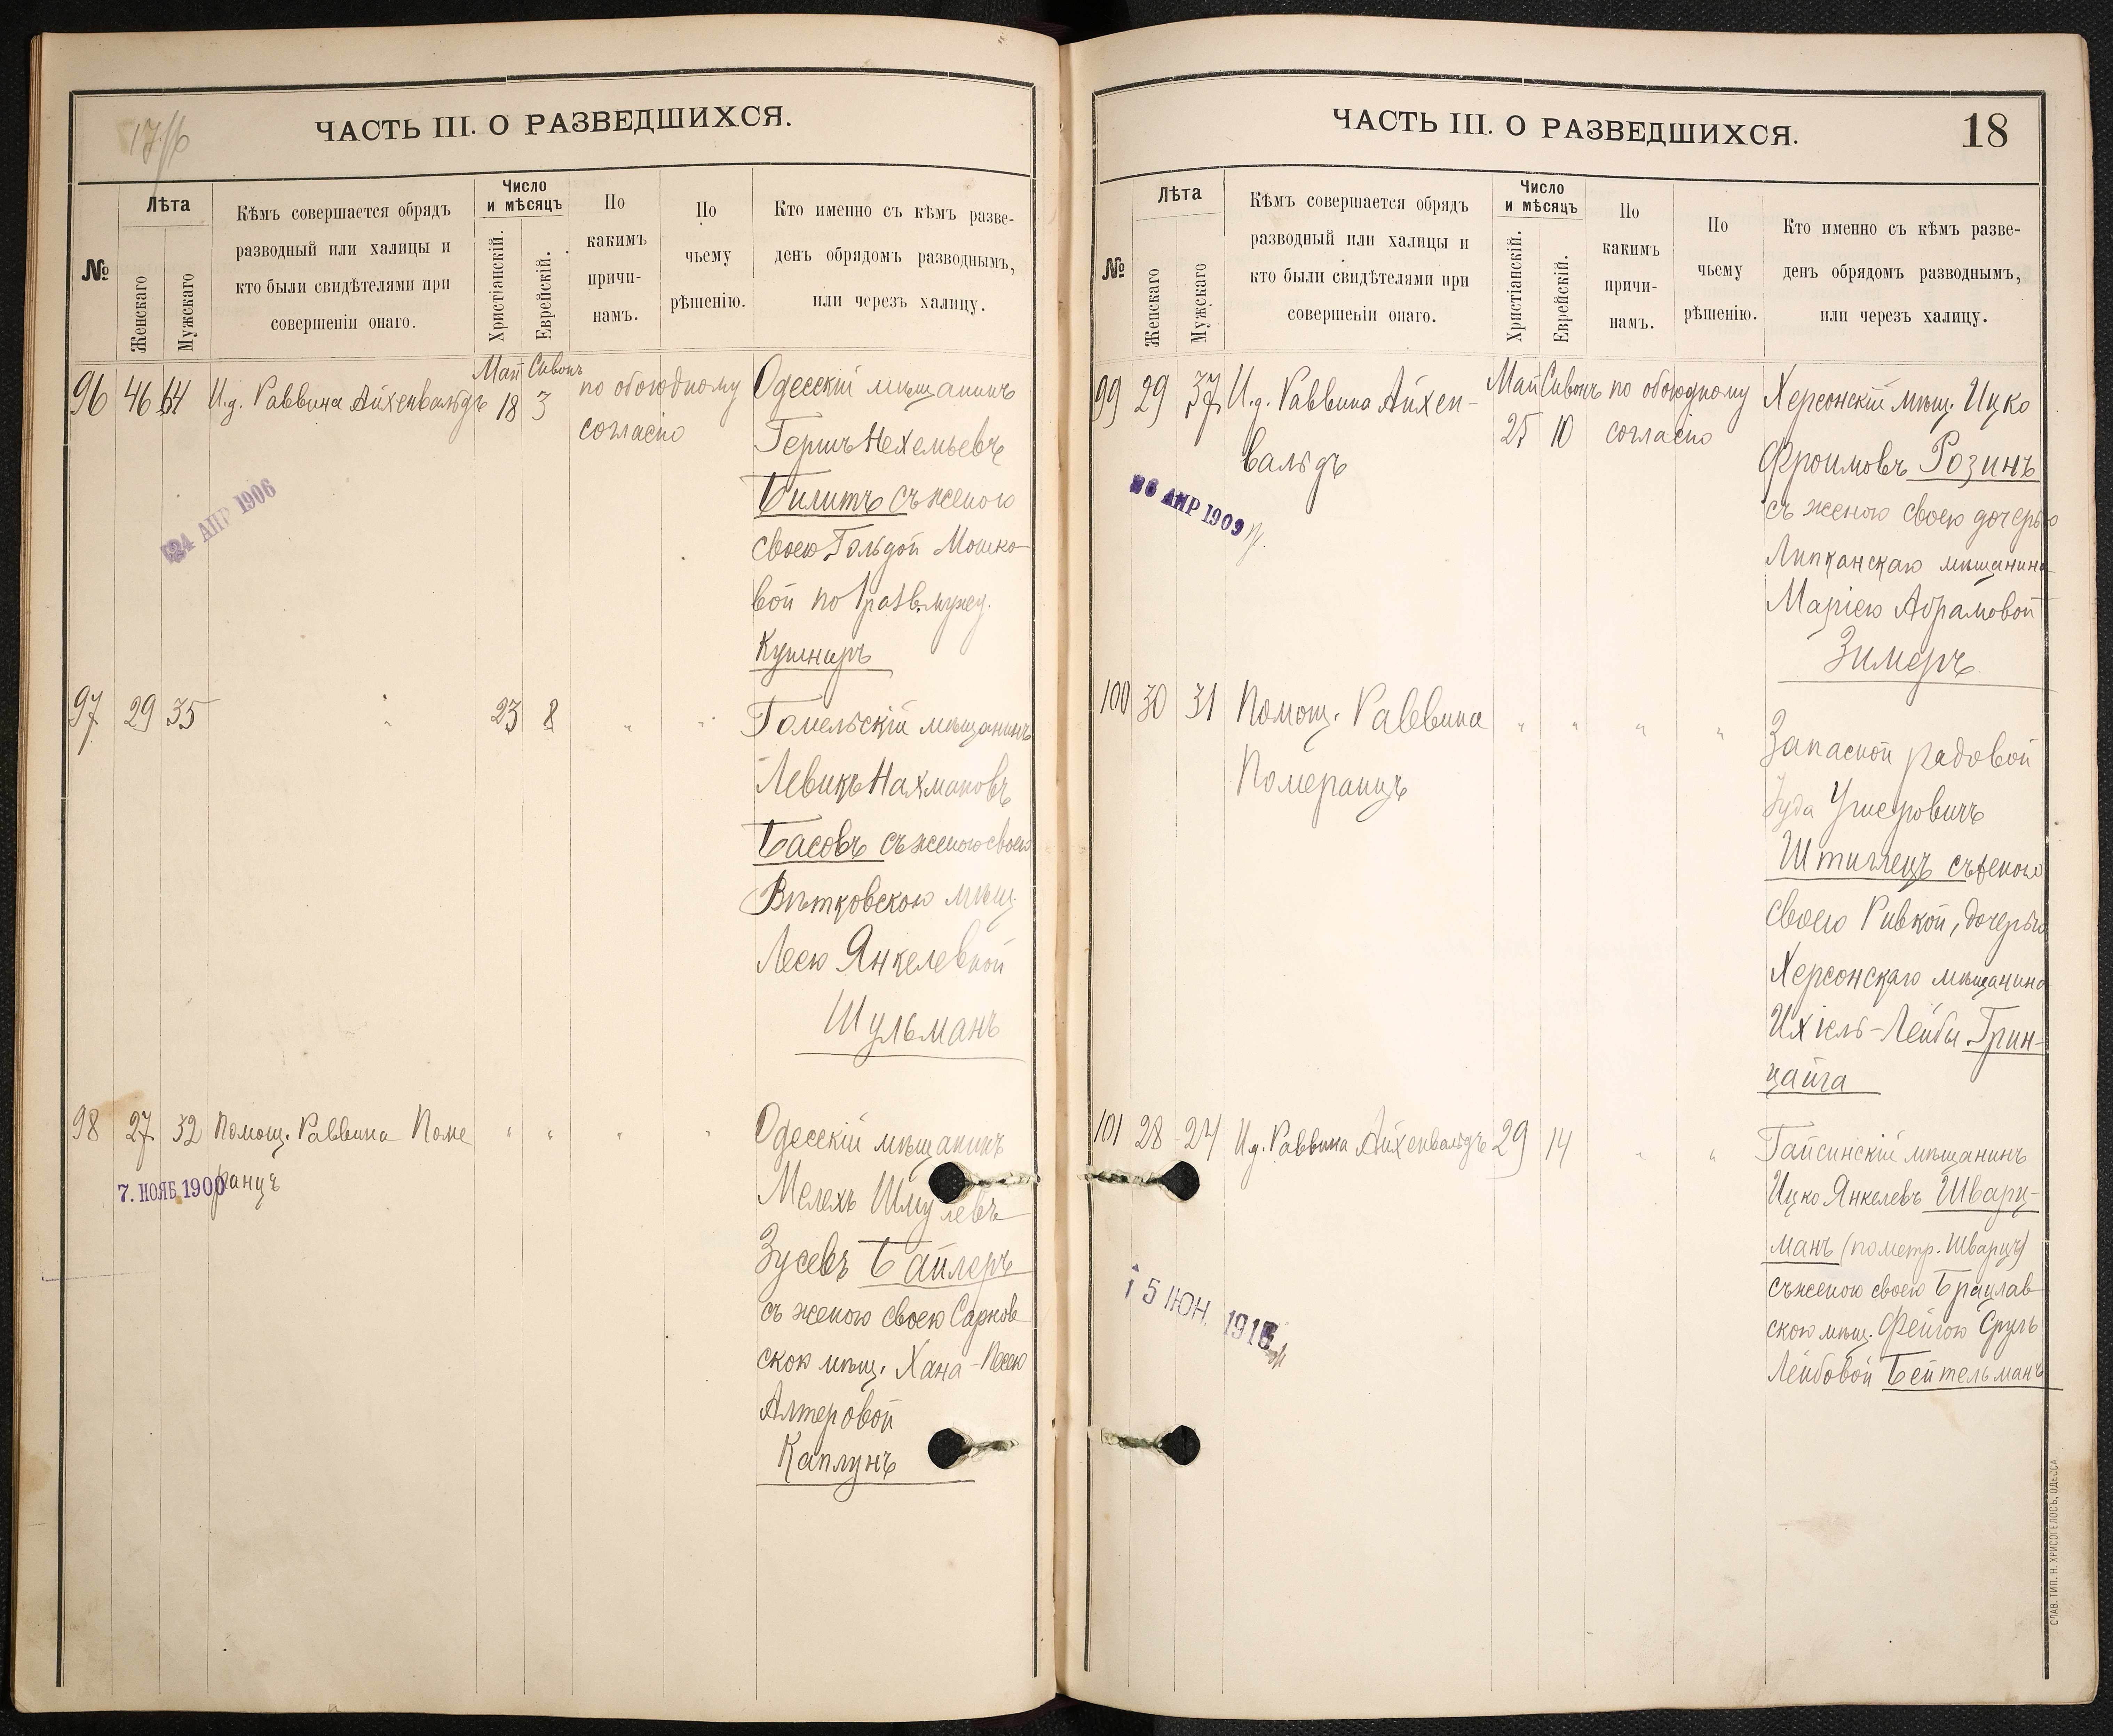 17/16
ЧАСТЬ III. О РАЗВЕДШИХСЯ.
№
Лѣта
Женскаго
Мужскаго
Кѣмъ совершается обрядъ
разводный или халицы и
кто были свидѣтелями при
совершеніи онаго.
Число
и мѣсяцъ
Христіанскій.
Еврейскій.
По
какимъ
причи-
намъ.
По
чьему
рѣшенію.
Кто именно съ кѣмъ разве-
денъ обрядомъ разводнымъ,
или черезъ халицу.
Май Сивонъ
96 46 64 И.д. Раввина Айхенвальдъ 18 3 по обоюдному
согласію
Одесскій мѣщанинъ
Гершъ Нехемьевъ
Билитъ съ женою
своею Гольдой Мошко-
вой по 1 разв. мужу.
Кушниръ
24 АПР 1906
97 29 35 " 23 8 " "
Гомельскій мѣщанинъ
Левикъ Нахмановъ
Басовъ съ женою своею
Вѣтковскою мѣщ.
Леею Янкелевной
Шульманъ
98 27 32 Помощ. Раввина Поме
ранцъ " " " "
7. НОЯБ. 1900
Одесскій мѣщанинъ
Мелехъ Шмулевъ
Зусевъ Байлеръ
съ женою своею Сарнов
скою мѣщ. Хана-Песею
Алтеровой
Каплунъ
ЧАСТЬ III. О РАЗВЕДШИХСЯ.
18
№
Лѣта
Женскаго
Мужскаго
Кѣмъ совершается обрядъ
разводный или халицы и
кто были свидѣтелями при
совершеніи онаго.
Число
и мѣсяцъ
Христіанскій.
Еврейскій.
По
какимъ
причи-
намъ.
По
чьему
рѣшенію.
Кто именно съ кѣмъ разве-
денъ обрядомъ разводнымъ,
или черезъ халицу.
Май Сивонъ
99 29 37 И.д. Раввина Айхен-
вальдъ 25 10 по обоюдному
согласію
26 АПР 1909
Херсонскій мѣщ. Ицко
Фроимовъ Розинъ
съ женою своею дочерью
Липканскаго мѣщанина
Маріею Абрамовой
Зимеръ
100 30 31 Помощ. Раввина
Померанцъ " " " "
Запасной рядовой
Іуда Ушеровичъ
Штиглецъ съ женою
своею Ривкой, дочерью
Херсонскаго мѣщанина
Ихіель-Лейбы Грин-
цайга
101 28 24 И.д. Раввина Айхенвальдъ 29 14 " "
15 ІЮН. 1915
Гайсинскій мѣщанинъ
Ицко Янкелевъ Шварц-
манъ (по метр. Шварцъ)
съ женою своею Брацлав
скою мѣщ. Фейгою Сруль
Лейбовой Бейтельманъ
СЛАВ. ТИП. Н. ХРИСОГЕЛОСЪ, ОДЕССА